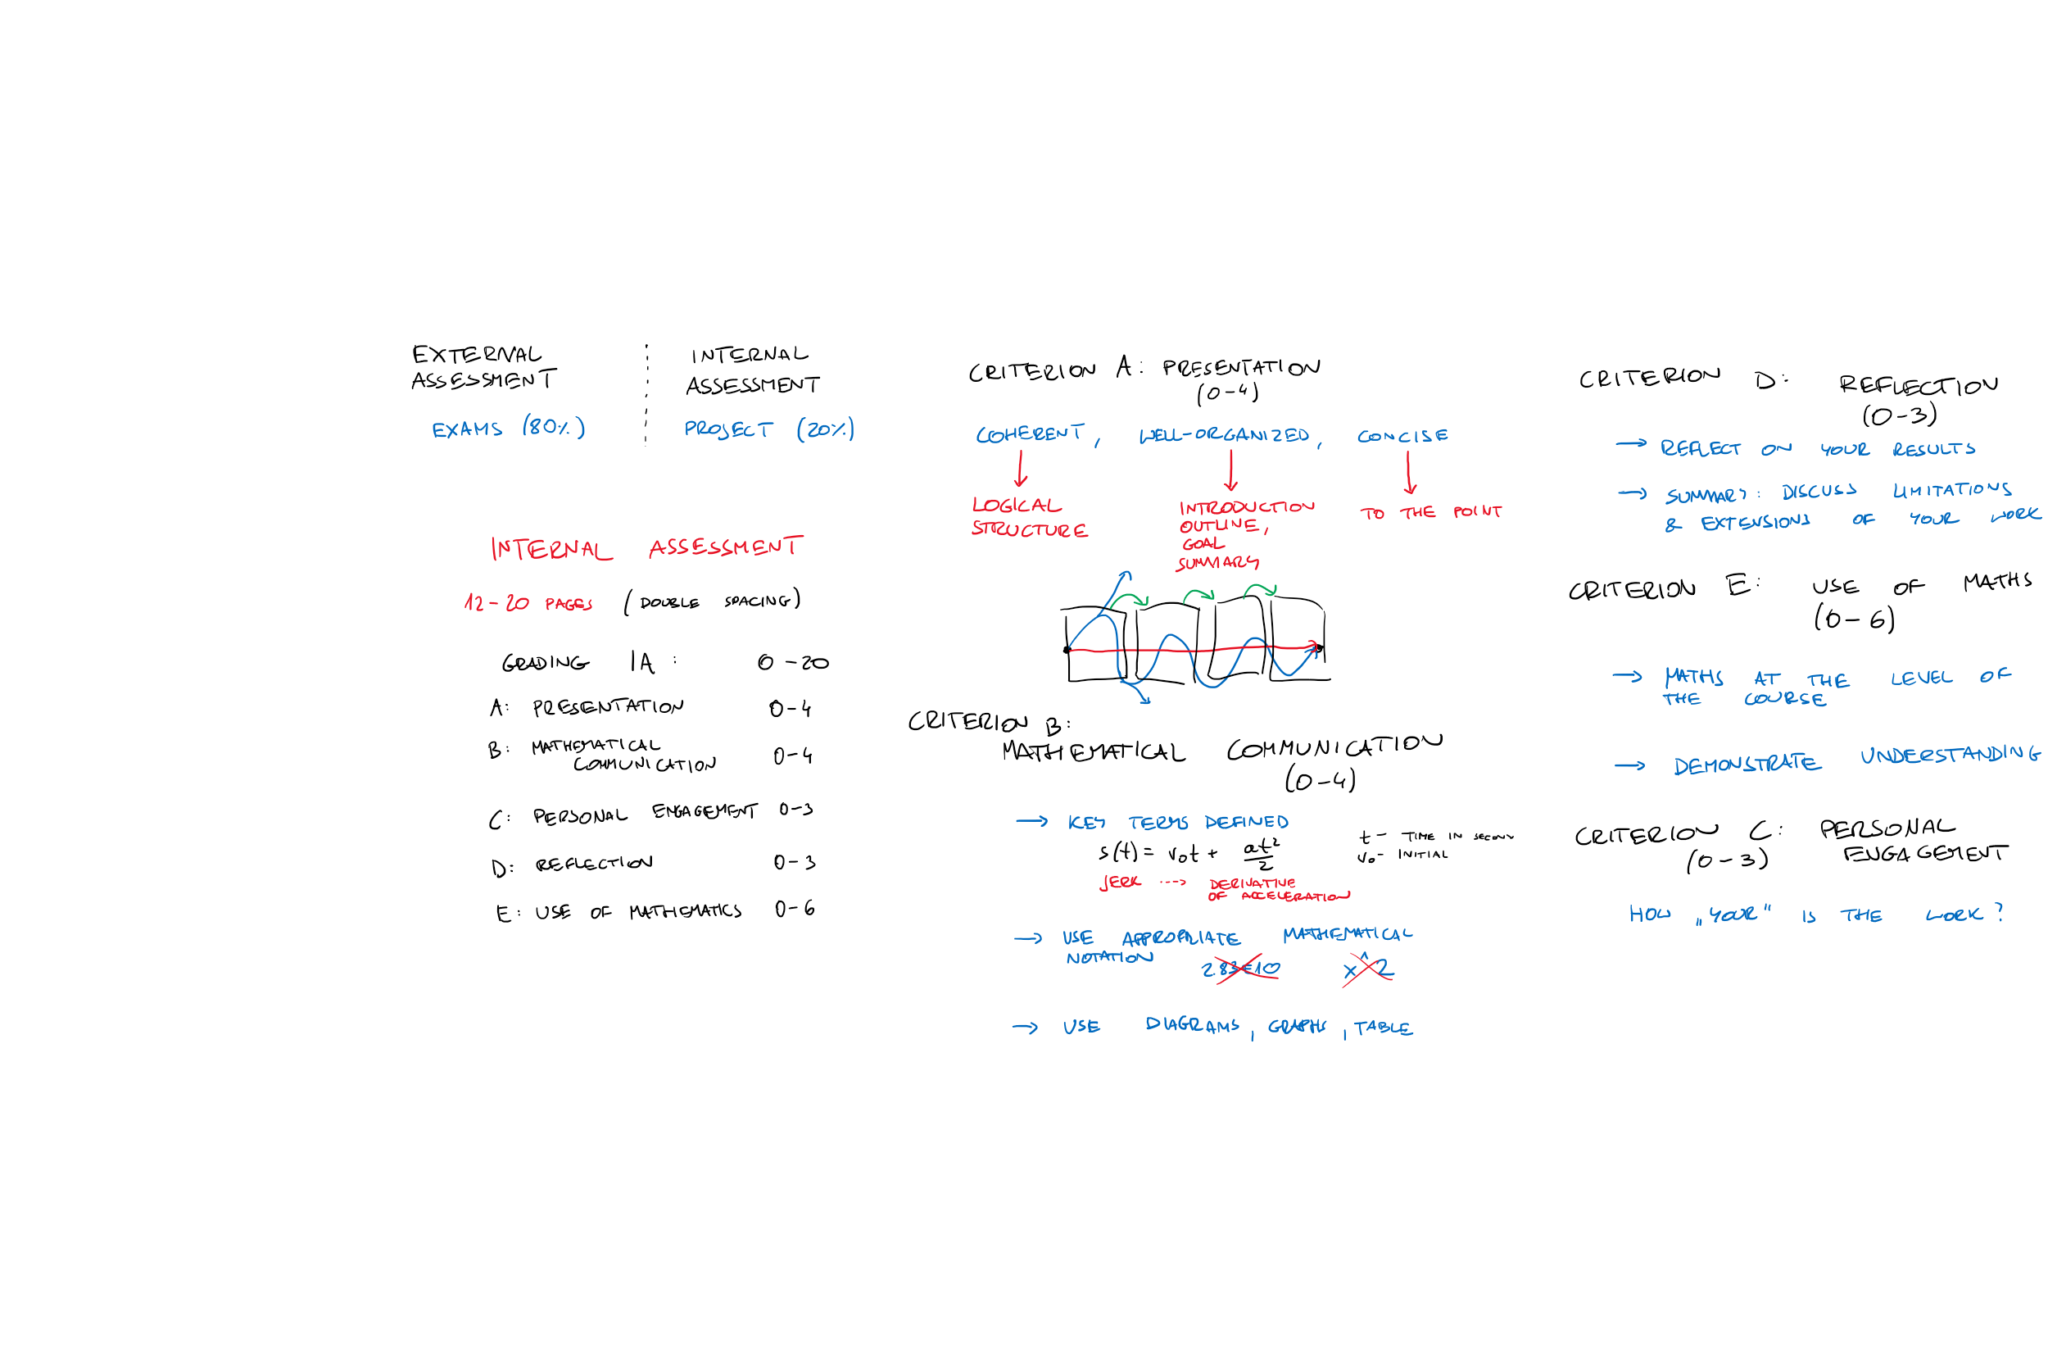 EXTERNAL
ASSESSMENT
EXAMS (80%)
INTERNAL
ASSESSMENT
PROJECT (20%)
INTERNAL ASSESSMENT
12-20 PAGES (DOUBLE SPACING)
GRADING IA: 0-20
A: PRESENTATION 0-4
B: MATHEMATICAL
COMMUNICATION 0-4
C: PERSONAL ENGAGEMENT 0-3
D: REFLECTION 0-3
E: USE OF MATHEMATICS 0-6
CRITERION A: PRESENTATION
(0-4)
COHERENT, WELL-ORGANIZED, CONCISE
LOGICAL
STRUCTURE
INTRODUCTION
OUTLINE,
GOAL
SUMMARY
TO THE POINT
CRITERION B:
MATHEMATICAL COMMUNICATION
(0-4)
→ KEY TERMS DEFINED
s(t) = v₀t + at²/2
t - TIME IN SECOND
v₀ - INITIAL
JERK ---> DERIVATIVE
OF ACCELERATION
→ USE APPROPRIATE MATHEMATICAL
NOTATION
2.83E10 x^2
→ USE DIAGRAMS, GRAPHS, TABLE
CRITERION D: REFLECTION
(0-3)
→ REFLECT ON YOUR RESULTS
→ SUMMARY: DISCUSS LIMITATIONS
& EXTENSIONS OF YOUR WORK
CRITERION E: USE OF MATHS
(0-6)
→ MATHS AT THE LEVEL OF
THE COURSE
→ DEMONSTRATE UNDERSTANDING
CRITERION C: PERSONAL
(0-3) ENGAGEMENT
HOW „YOUR" IS THE WORK?